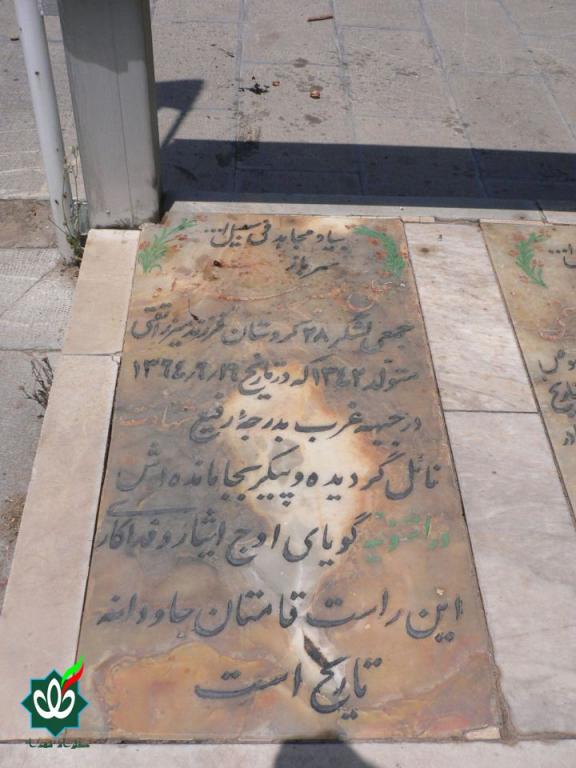 بیاد مجاهد فی سبیل ا...
سرباز
جمعی لشگر ۲۸ کردستان فرزند میرزاتقی
متولد ۱۳۴۲ که در تاریخ ۱۳۶۴/۶/۱۹
در جبهه غرب بدرجهٔ رفیع
نائل گردیده و پیکر بجا مانده اش
گویای اوج ایثار و فداکاری
این راست قامتان جاودانه
تاریخ است